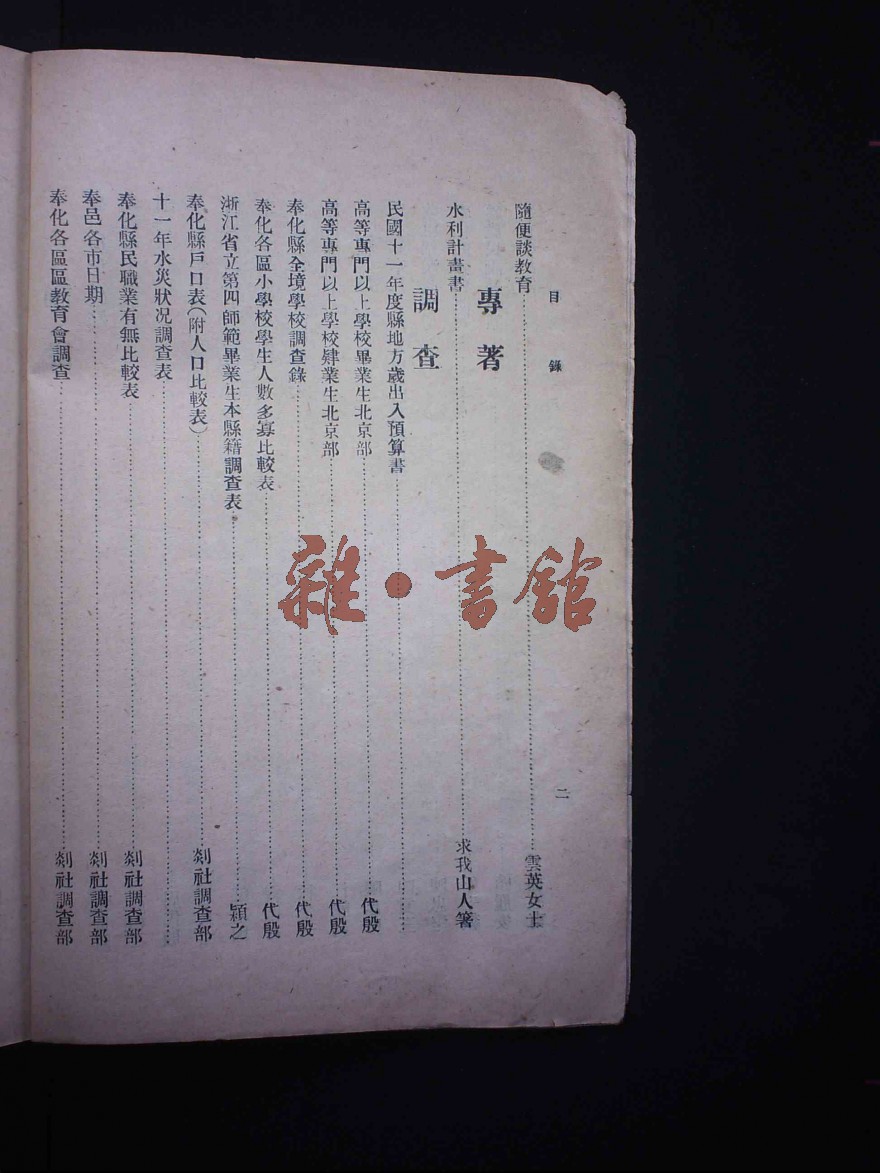 目錄
二
隨便談教育 雲英女士
專著
水利計畫書 求我山人箸
調查
民國十一年度縣地方歲出入預算書
高等專門以上學校畢業生北京部 代殷
高等專門以上學校肄業生北京部 代殷
奉化縣全境學校調查錄 代殷
奉化各區小學校學生人數多寡比較表 代殷
浙江省立第四師範畢業生本縣籍調查表 穎之
奉化縣戶口表(附人口比較表) 剡社調查部
十一年水災狀况調查表
奉化縣民職業有無比較表 剡社調查部
奉邑各市日期 剡社調查部
奉化各區區教育會調查 剡社調查部
雜·書館